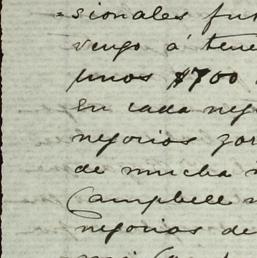 =sionales fu
vengo á tene
unos $700
En cada neg
negocios zor
de mucha
Campbell
negocios de